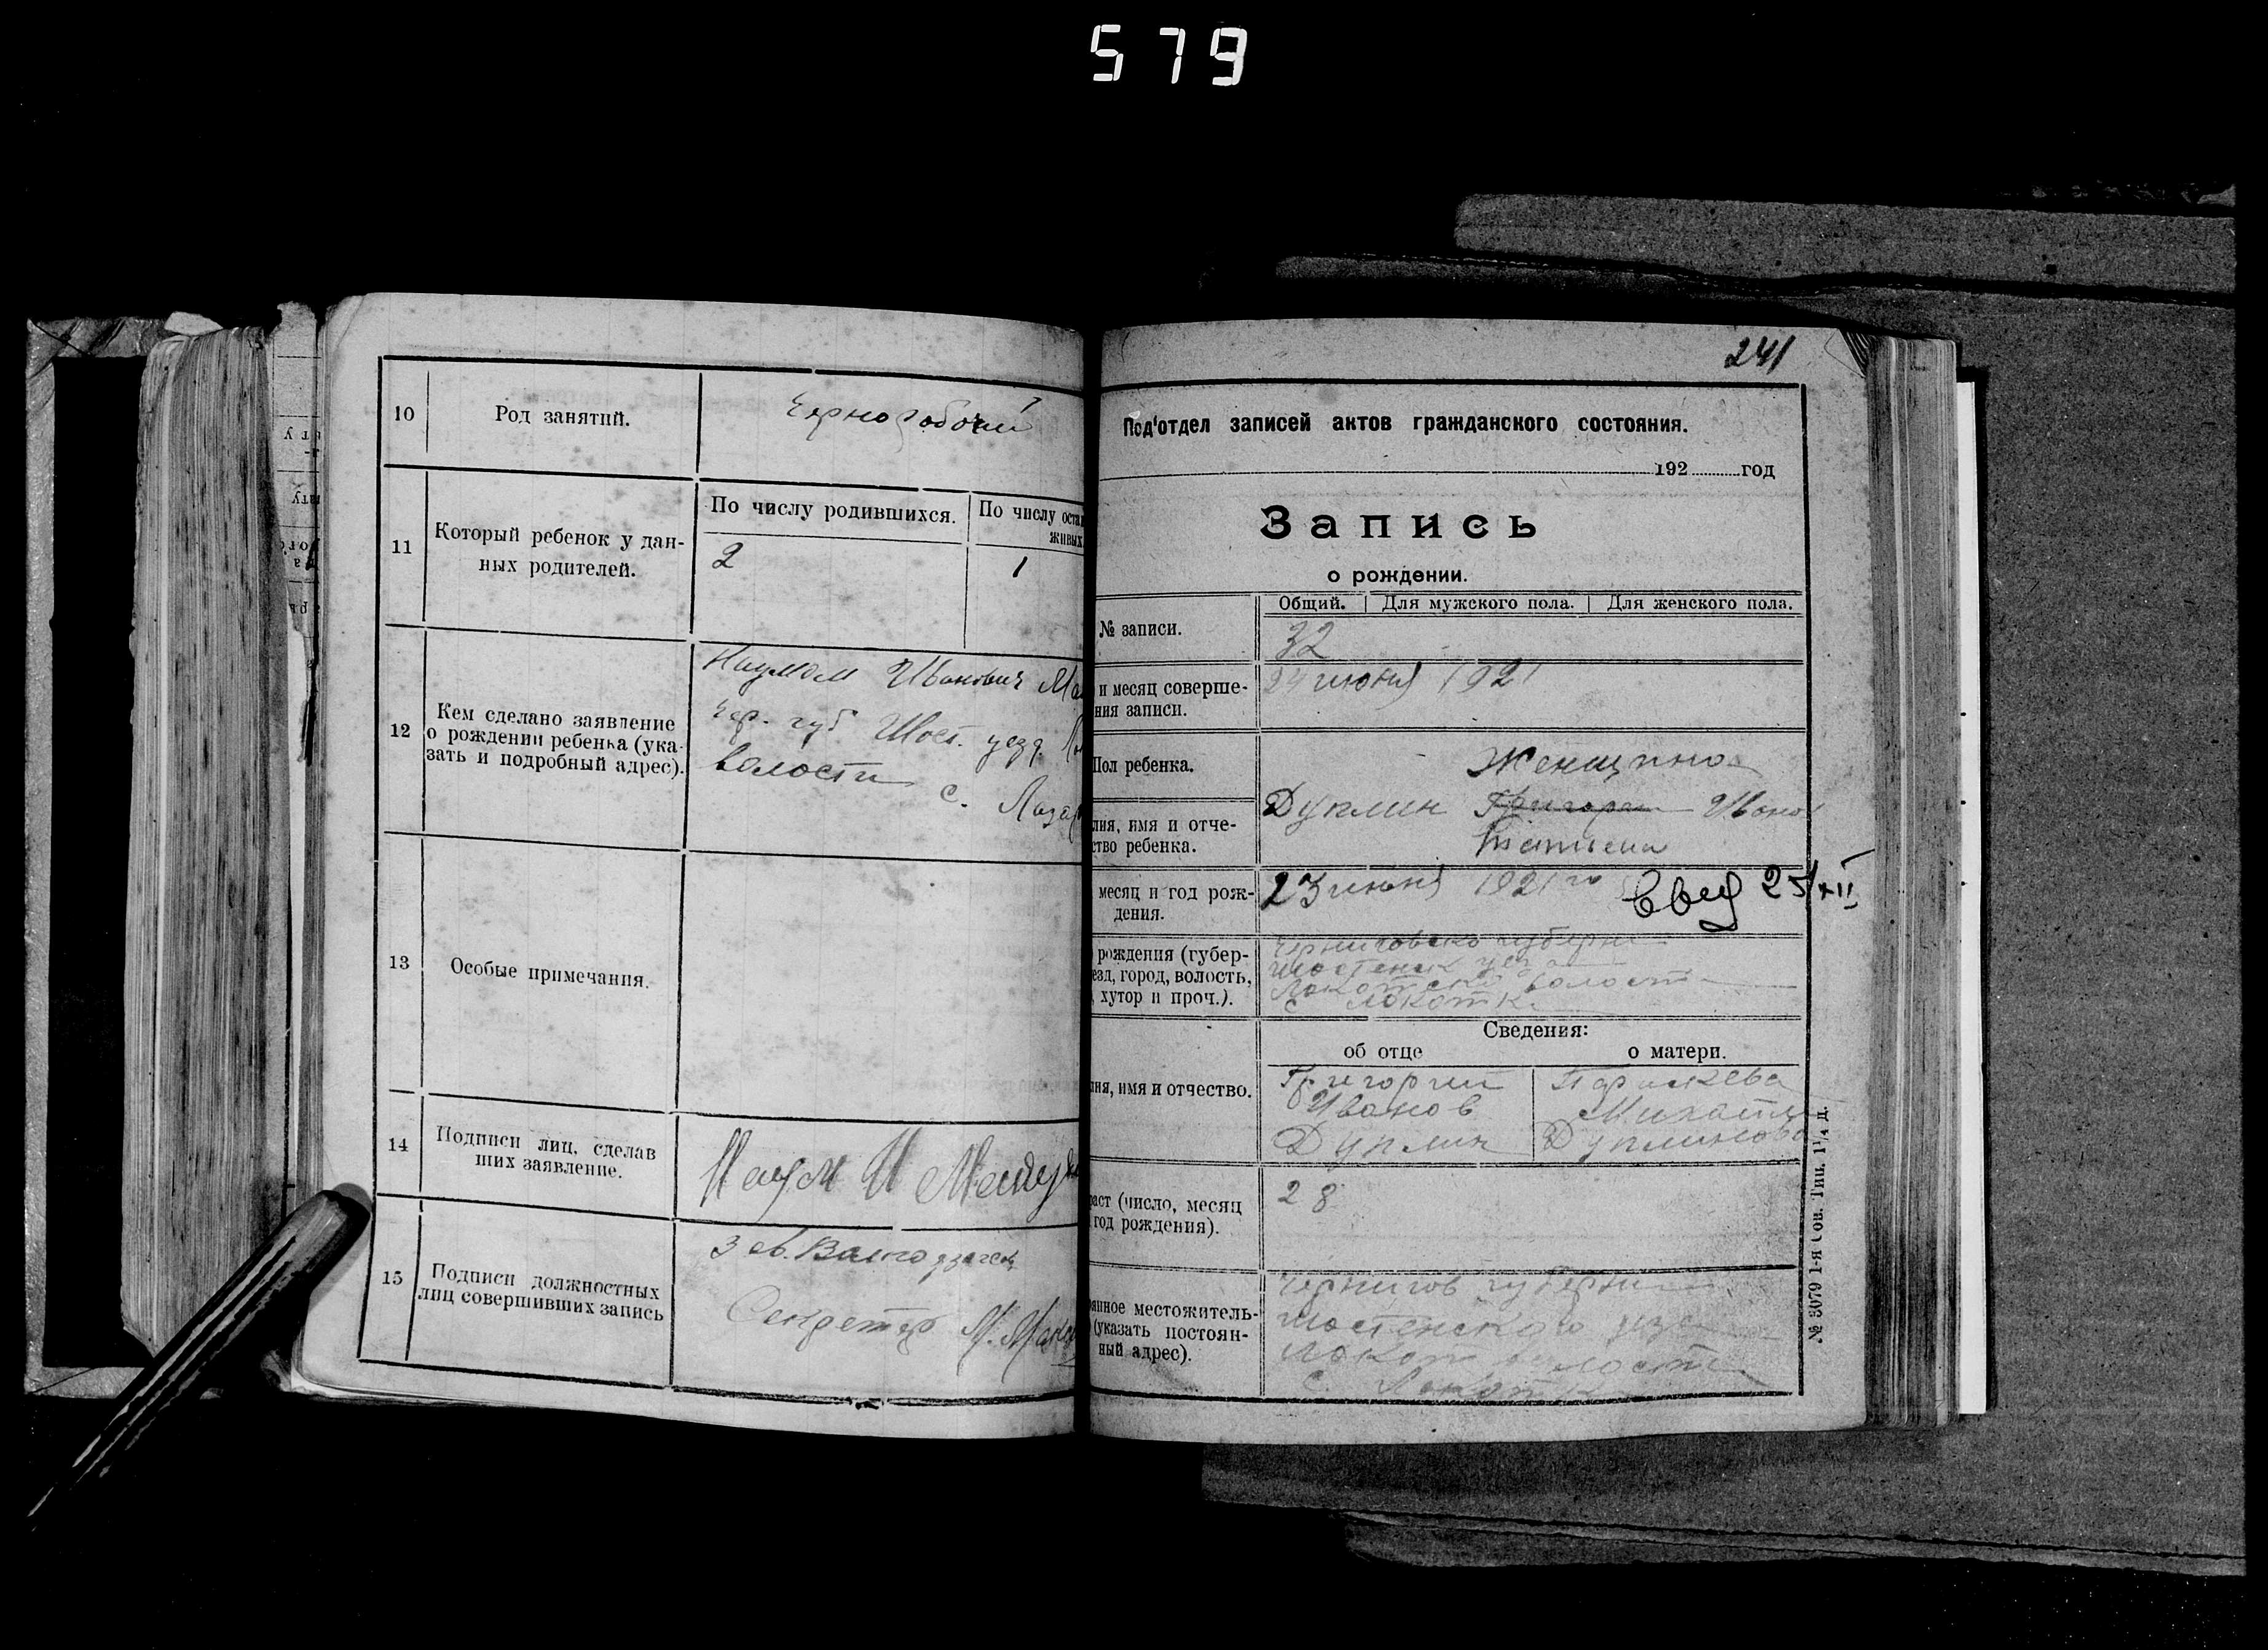 579
10
Род занятий.
Чернорабочий
11
Который ребенок у дан-
ных родителей.
По числу родившихся.
По числу оста
живых.
2
1
12
Кем сделано заявление
о рождении ребенка (ука-
зать и подробный адрес).
Наумом Иванович
Чер. губ Шост. уезд.
волости
с.
13
Особые примечания.
14
Подписи лиц, сделав
ших заявление.
Наум И
15
Подписи должностных
лиц совершивших запись
Зав.
Секретар
241
Под'отдел записей актов гражданского состояния.
192 год
Запись
о рождении.
Общий. Для мужского пола. Для женского пола.
№ записи.
32
и месяц соверше-
ния записи.
24 июня 1921
Пол ребенка.
Женщина
лия, имя и отче-
ство ребенка.
Дуплин Григорий Иванов
Татьена
месяц и год рож-
дения.
23 июня 1921 го
Свид 25/XII
рождения (губер-
езд, город, волость,
, хутор и проч.).
Черниговско губерни
Шостенск уез
Локотской волости
с Локотк
Сведения:
об отце
о матери.
лия, имя и отчество.
Григорий
Иванов
Дуплин
Параскева
Михайл
Дуплинова
раст (число, месяц
год рождения).
28
янное местожитель-
(указать постоян-
ный адрес).
Чернигов губерни
Шостенского уез
Локот волости
с. Локотк
№ 3079 1-я Сов. Тип. 1¼ д.